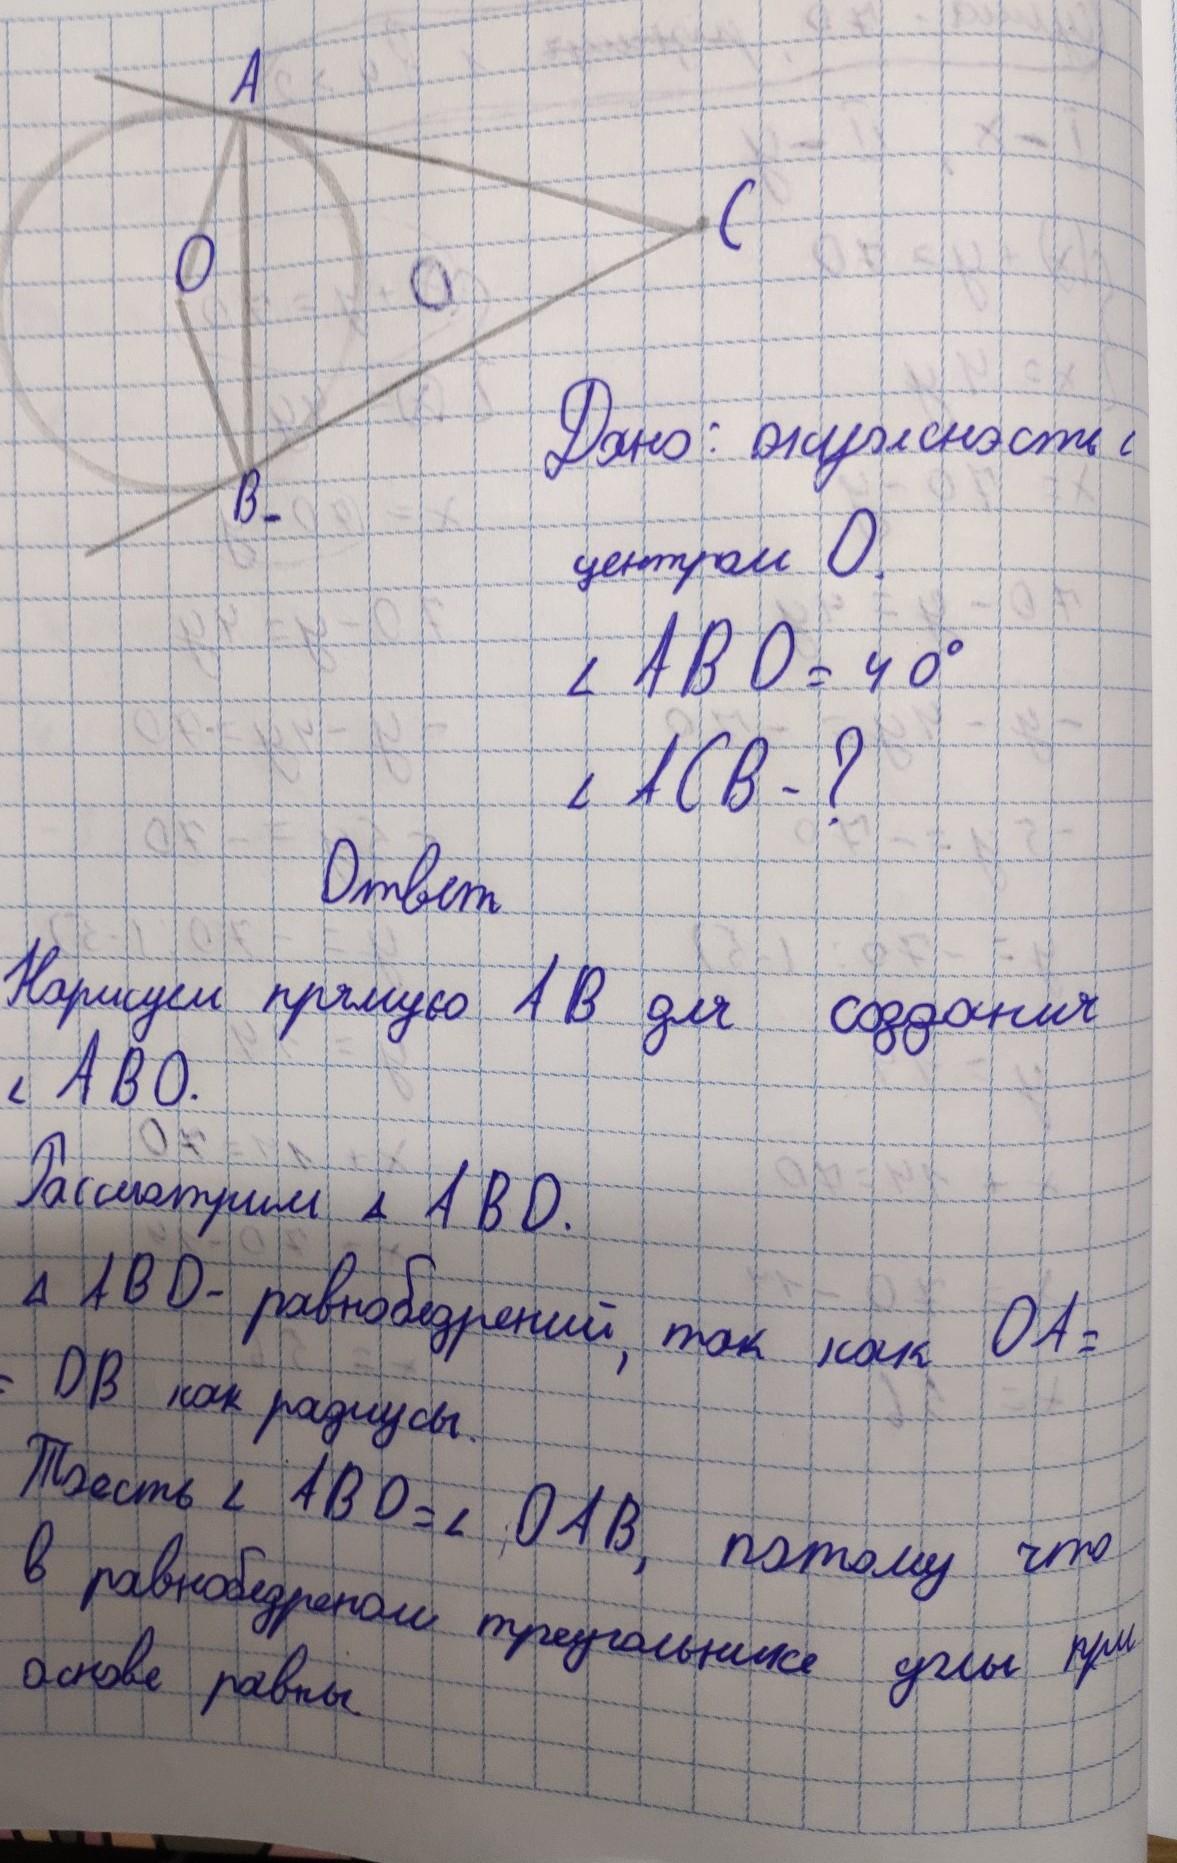 A
O
O
C
B-
Дано: окружность с
центром O.
∠ ABO = 40°
∠ ACB - ?
Ответ
Нарисуем прямую AB для создания
∠ ABO.
Рассмотрим Δ ABO.
Δ ABO - равнобедрений, так как OA=
= OB как радиусы.
Тоесть ∠ ABO = ∠ OAB, потому что
в равнобедреном треугольнике углы при
основе равны